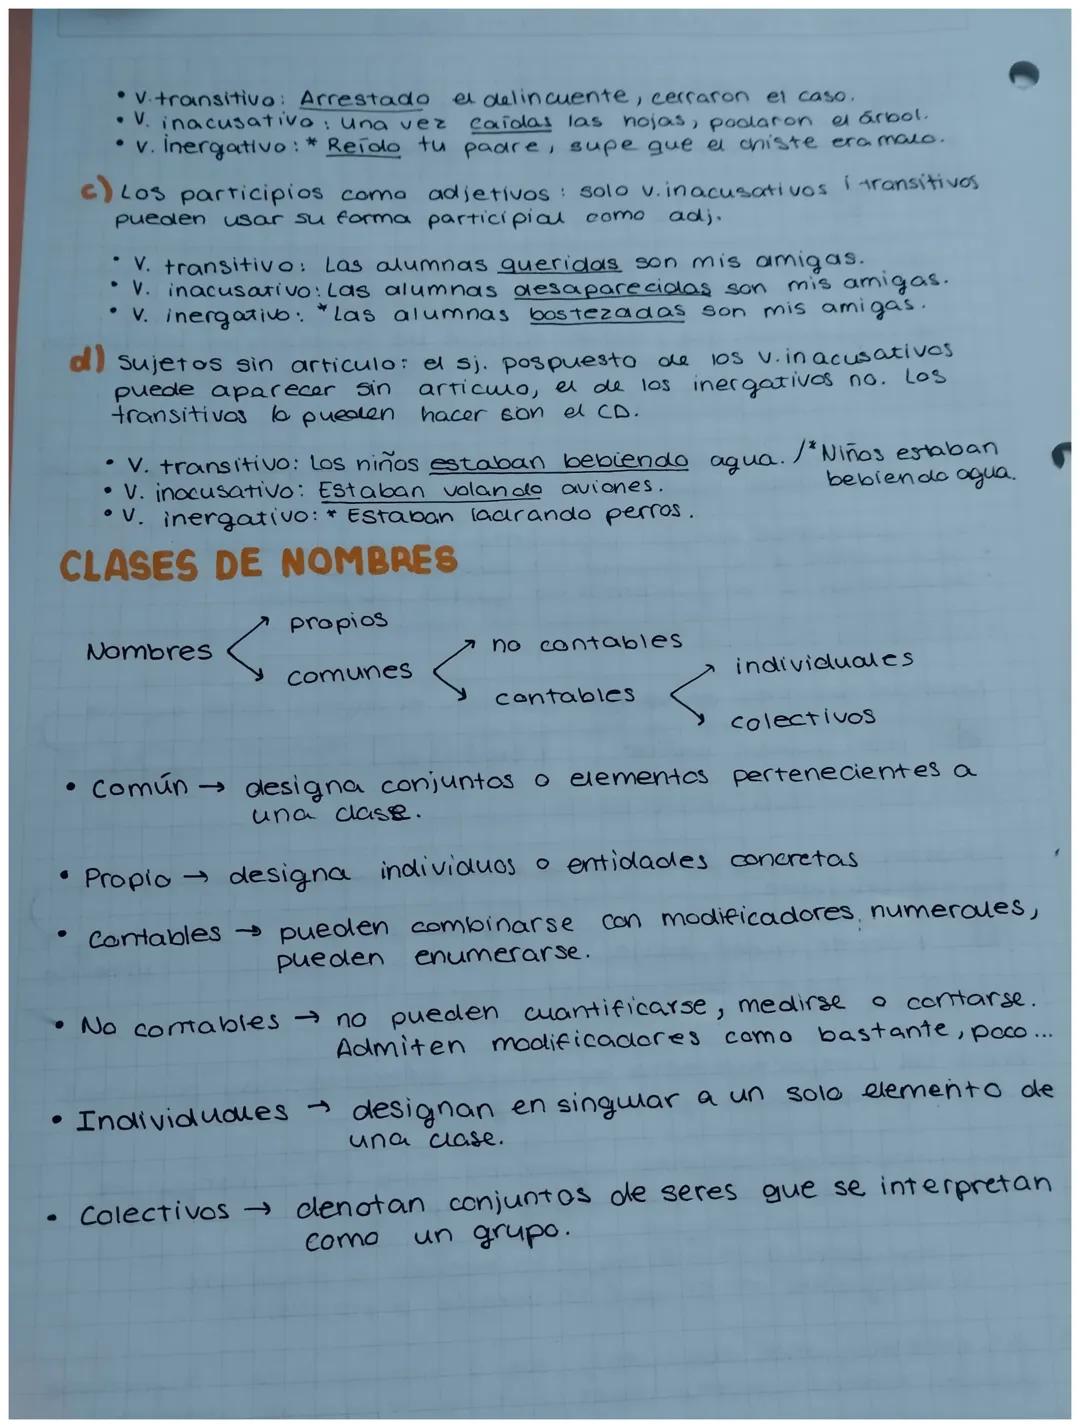 • V. transitivo: Arrestado el delincuente, cerraron el caso.
• V. inacusativo: una vez caídas las hojas, podaron el árbol.
• V. inergativo: * Reído tu padre, supe que el chiste era malo.
c) Los participios como adjetivos: solo v. inacusativos i transitivos
pueden usar su forma participial como adj.
• V. transitivo: Las alumnas queridas son mis amigas.
• V. inacusativo: Las alumnas desaparecidas son mis amigas.
• V. inergativo: *Las alumnas bostezadas son mis amigas.
d) Sujetos sin articulo: el sj. pospuesto de los v. inacusativos
puede aparecer sin articulo, el de los inergativos no. Los
transitivos lo pueden hacer son el CD.
• V. transitivo: Los niños estaban bebiendo agua. /*Niños estaban
bebiendo agua.
• V. inacusativo: Estaban volando aviones.
• V. inergativo: * Estaban ladrando perros.
CLASES DE NOMBRES
Nombres
propios
comunes
no contables
contables
individuales
colectivos
• Común → designa conjuntos o elementos pertenecientes a
una clase.
• Propio → designa individuos o entidades concretas
• Contables → pueden combinarse con modificadores numerales,
pueden enumerarse.
• No contables → no pueden cuantificarse, medirse o contarse.
Admiten modificadores como bastante, poco...
• Individuales → designan en singular a un solo elemento de
una clase.
• Colectivos → denotan conjuntos de seres que se interpretan
como un grupo.